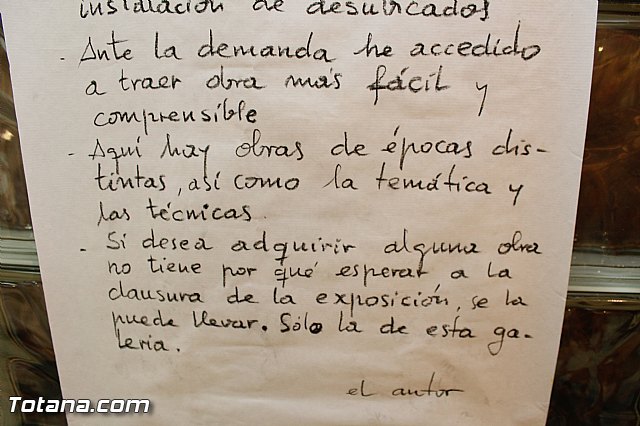 instalación de desubicados
- Ante la demanda he accedido
a traer obra más fácil y
comprensible
- Aquí hay obras de épocas dis-
tintas, así como la temática y
las técnicas.
- Si desea adquirir alguna obra
no tiene por qué esperar a la
clausura de la exposición, se la
puede llevar. Sólo la de esta ga-
lería.
el autor
Totana.com